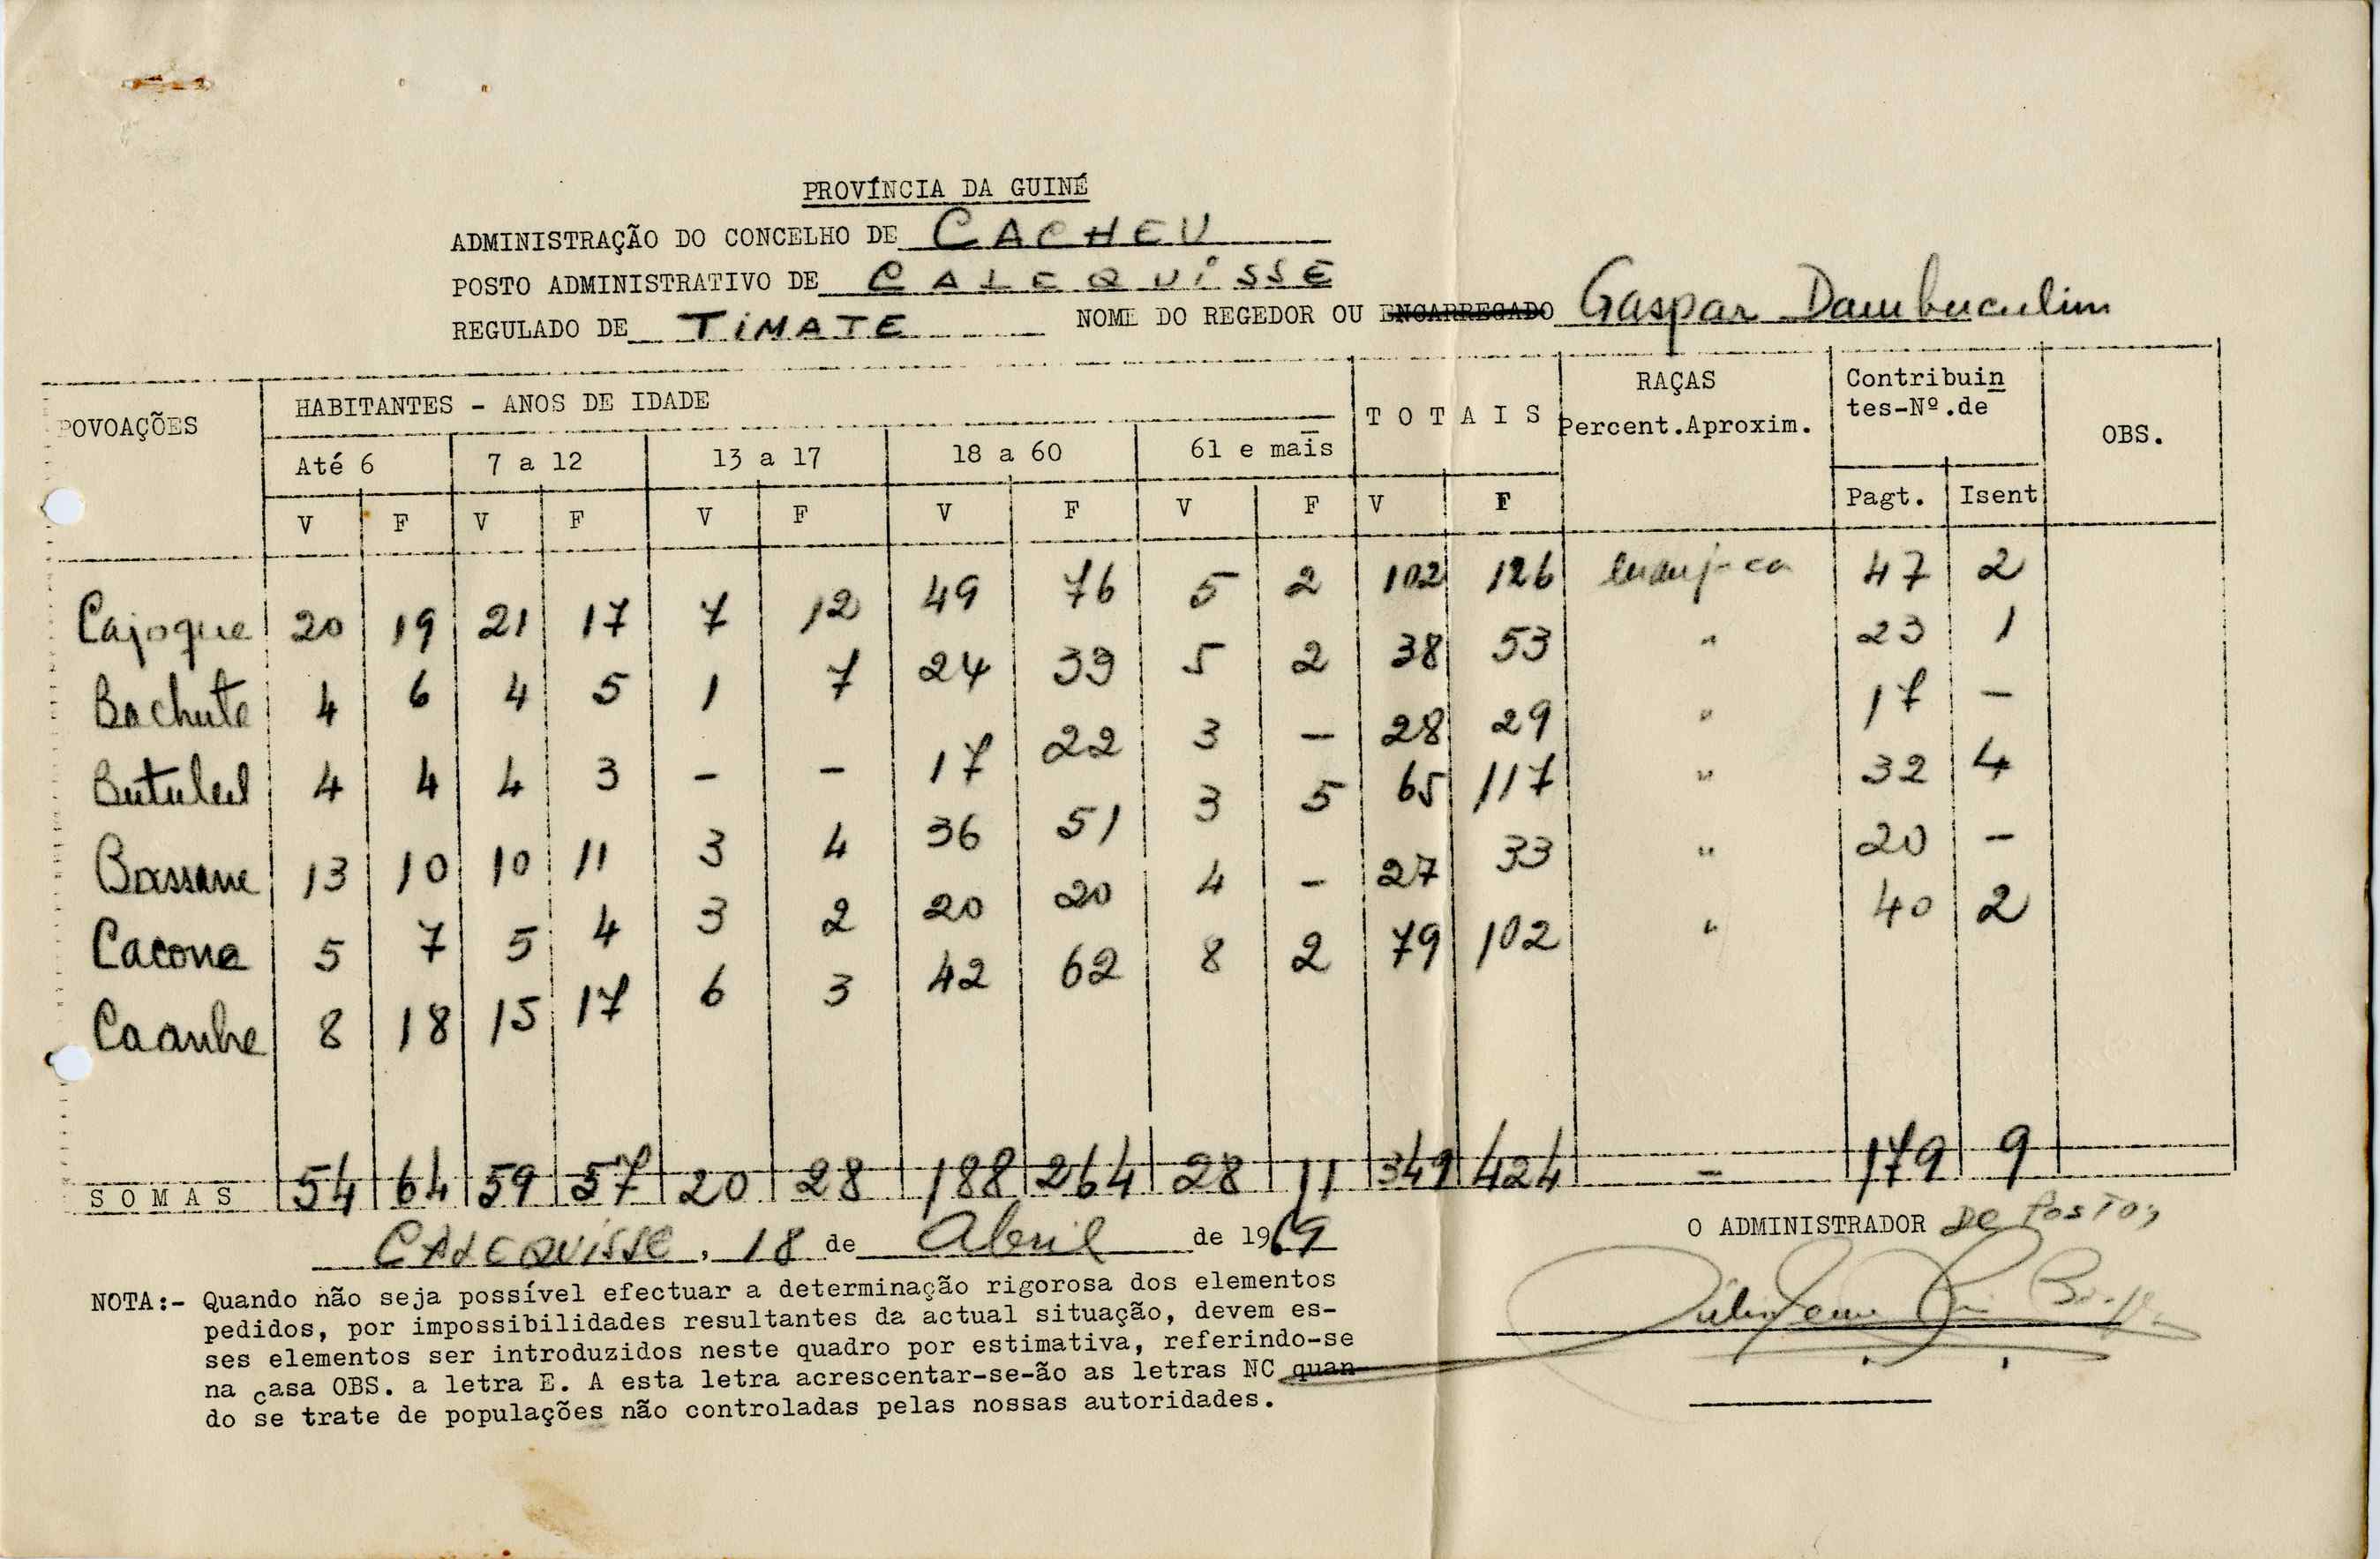 PROVÍNCIA DA GUINÉ
ADMINISTRAÇÃO DO CONCELHO DE CACHEU
POSTO ADMINISTRATIVO DE CALEQUISSE
REGULADO DE TIMATE NOME DO REGEDOR OU ENCARREGADO Gaspar Dambuculim
POVOAÇÕES HABITANTES - ANOS DE IDADE TOTAIS RAÇAS Percent.Aproxim. Contribuin tes-Nº.de OBS.
Até 6 7 a 12 13 a 17 18 a 60 61 e mais
V F V F V F V F V F V F Pagt. Isent
Cajoque 20 19 21 17 7 12 49 76 5 2 102 126 manjaca 47 2
Bachute 4 6 4 5 1 7 24 33 5 2 38 53 " 23 1
Butuleul 4 4 4 3 - - 17 22 3 - 28 29 " 17 -
Bassene 13 10 10 11 3 4 36 51 3 5 65 117 " 32 4
Cacone 5 7 5 4 3 2 20 20 4 - 27 33 " 20 -
Caanhe 8 18 15 17 6 3 42 62 8 2 79 102 " 40 2
SOMAS 54 64 59 57 20 28 188 264 28 11 349 424 - 179 9
CALEQUISSE, 18 de Abril de 1969
O ADMINISTRADOR DE POSTO,
NOTA:- Quando não seja possível efectuar a determinação rigorosa dos elementos
pedidos, por impossibilidades resultantes da actual situação, devem es-
ses elementos ser introduzidos neste quadro por estimativa, referindo-se
na casa OBS. a letra E. A esta letra acrescentar-se-ão as letras NC quan-
do se trate de populações não controladas pelas nossas autoridades.